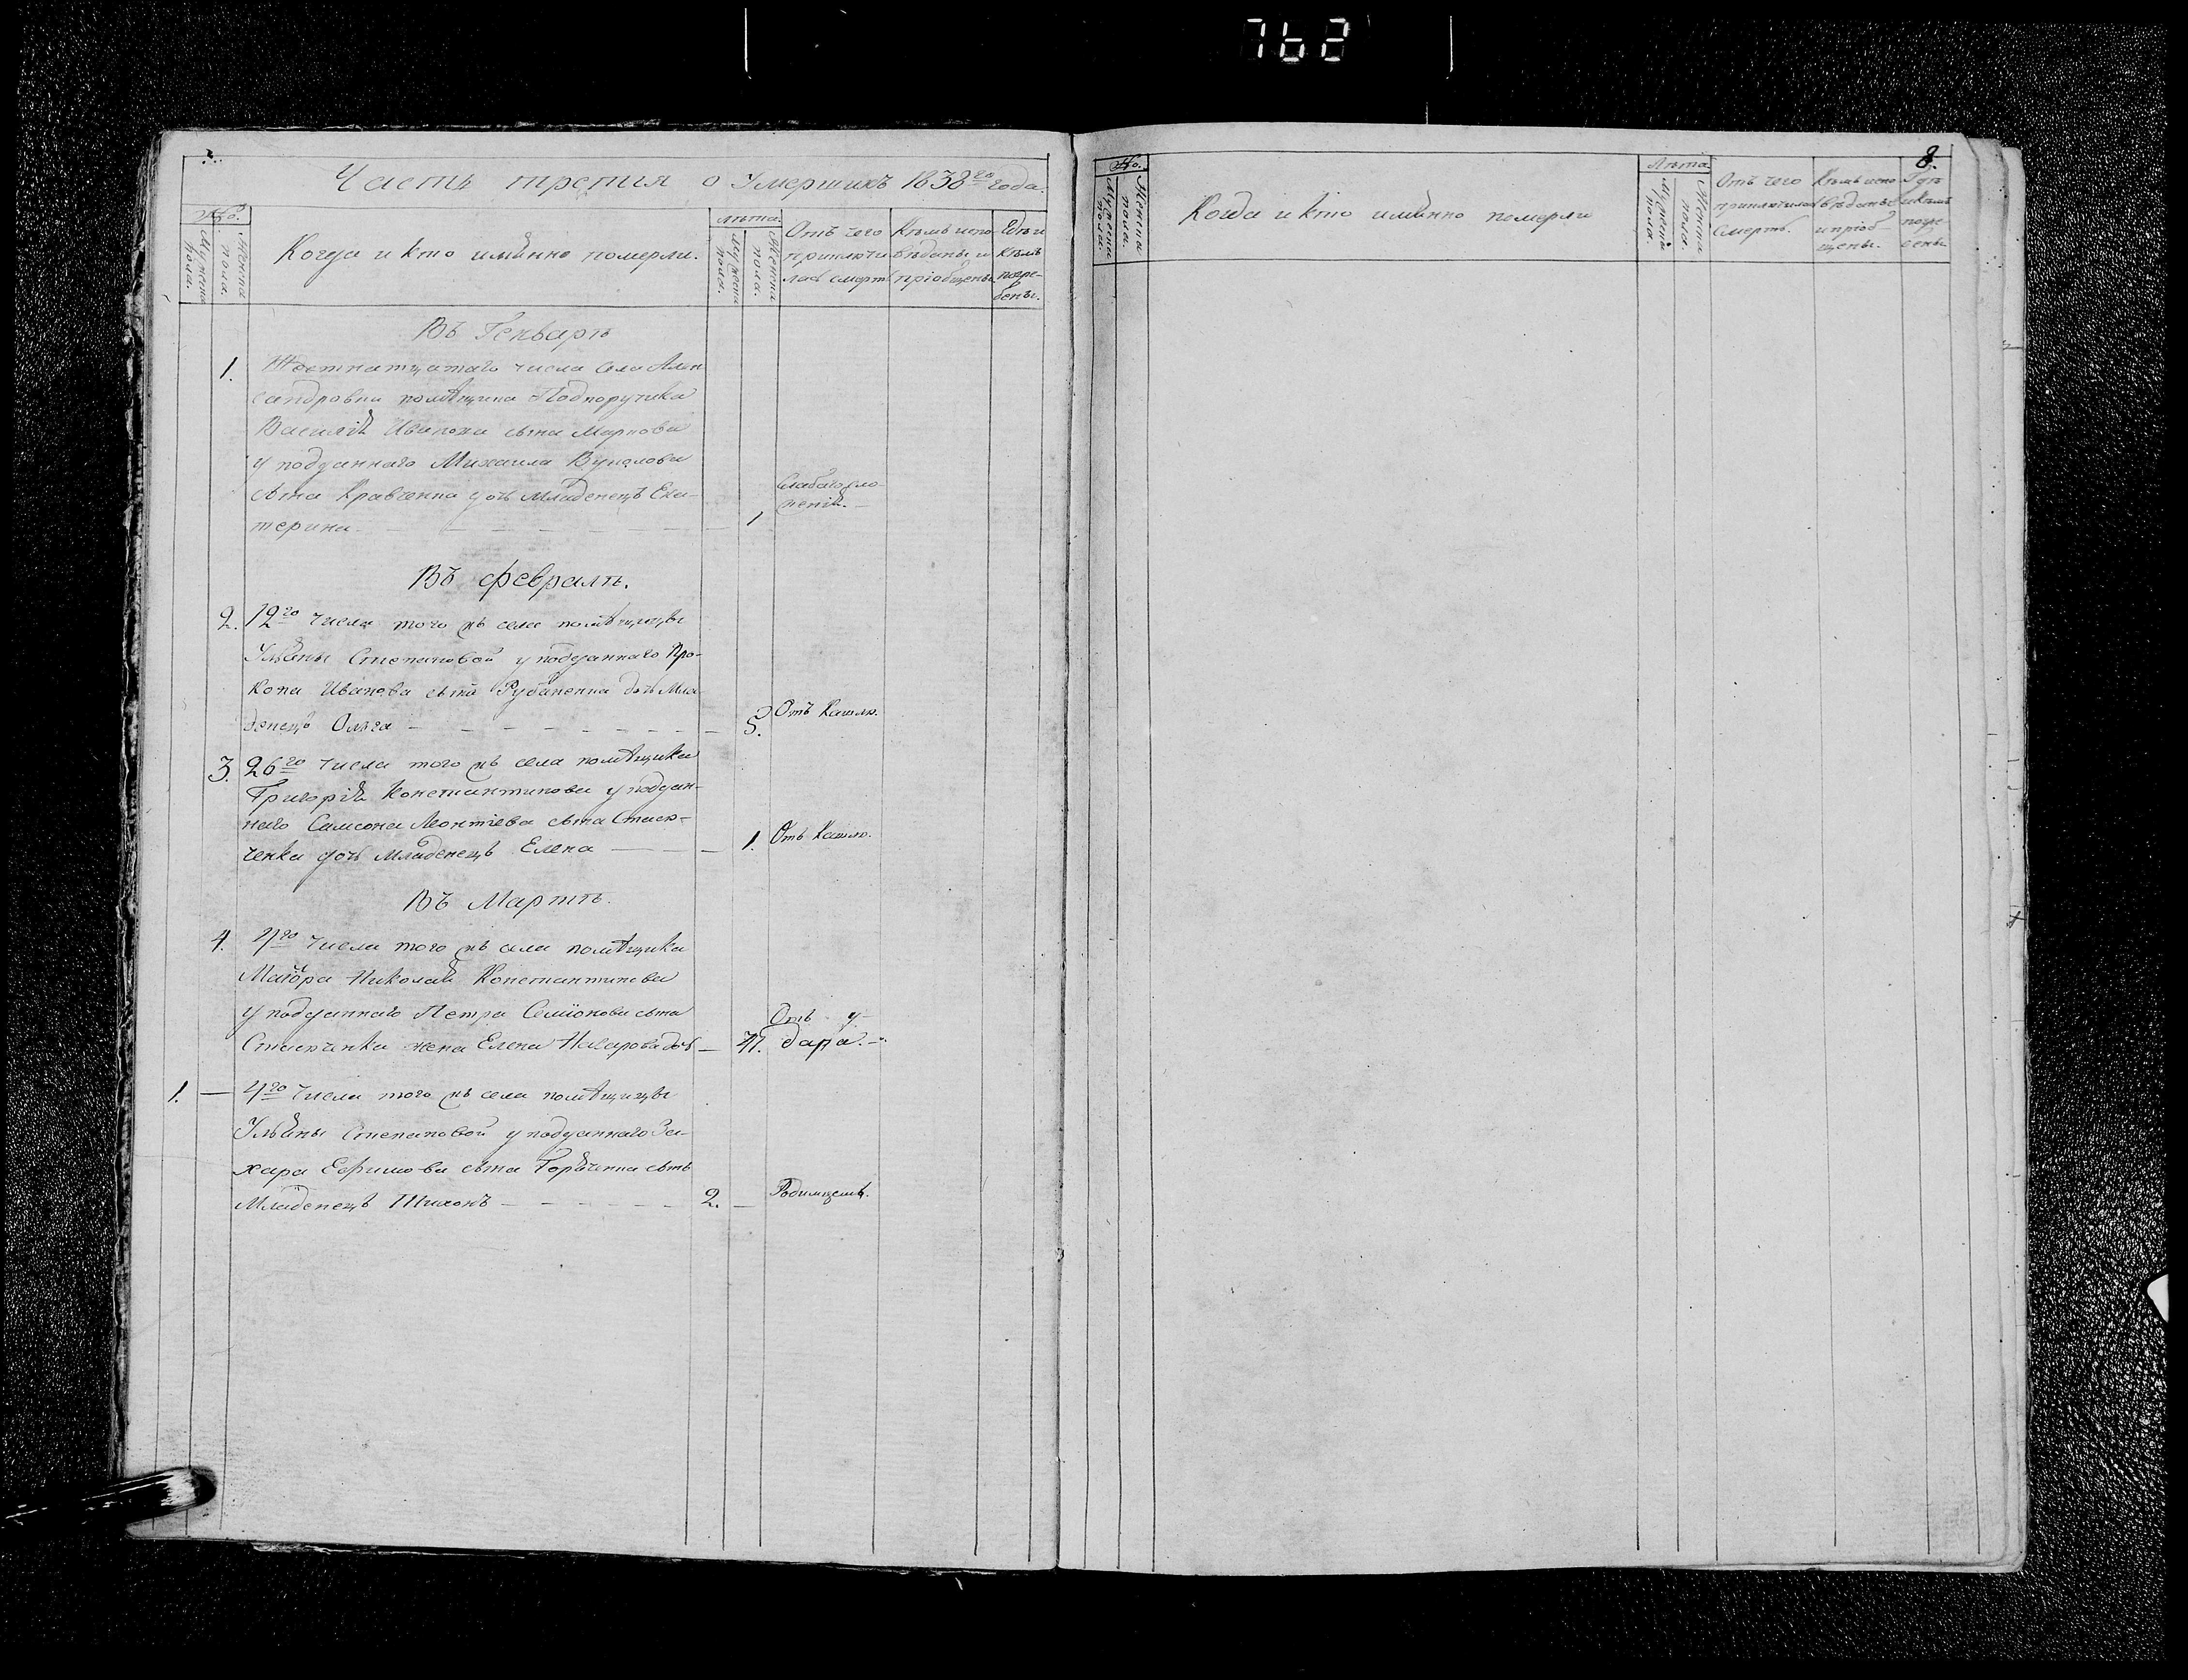 762
Часть третія о Умершихъ 1838го года.
No.
Мужеска пола.
Женска пола.
Когда и кто имянно померли.
лѣта.
Мужеска пола.
Женска пола.
Отъ чего
приключи
лась смерть
Кѣмъ испо
вѣданы и
пріобщены
Гдѣ и
кѣмъ
погре-
бены.
Въ Генварѣ
1. числа села Алек
сандровки помѣщика Подпоручика
Василія Иванова сына Маркова
у подданнаго Михаила Вукалова
сына Кравченка дочь Младенецъ Ека-
терина. 1
Слабаго сло-
женія.
Въ Февралѣ.
2. 12го числа того жъ села помѣщицы
Ульяны Степановой у подданнаго Про-
копа Иванова сына Рубаненка дочь Мла
денецъ Ольга 5. Отъ Кашлю.
3. 26го числа того жъ села помѣщика
Григорія Константинова у поддан-
наго Самсона Леонтіева сына
ченка дочь Младенецъ Елена 1. Отъ Кашлю.
Въ Мартѣ.
4. 4го числа того жъ села помѣщика
Маіора Николая Константинова
у подданнаго Петра Семіонова сына
жена Елена Назарова дочь 71.
Отъ у-
дара.
1. — 4го числа того жъ села помѣщицы
Ульяны Степановой у подданнаго За-
хара Ефимова сына Горяченка сынъ
Младенецъ Тихонъ 2. — Родимцемъ.
8.
No.
Мужеска пола.
Женска пола.
Когда и кто имянно померли
Лѣта
Мужеска пола.
Женска пола.
Отъ чего
приключилась
Смерть.
Кѣмъ испо
вѣданы
и пріоб-
щены.
Гдѣ
и кѣмъ
погре
бены